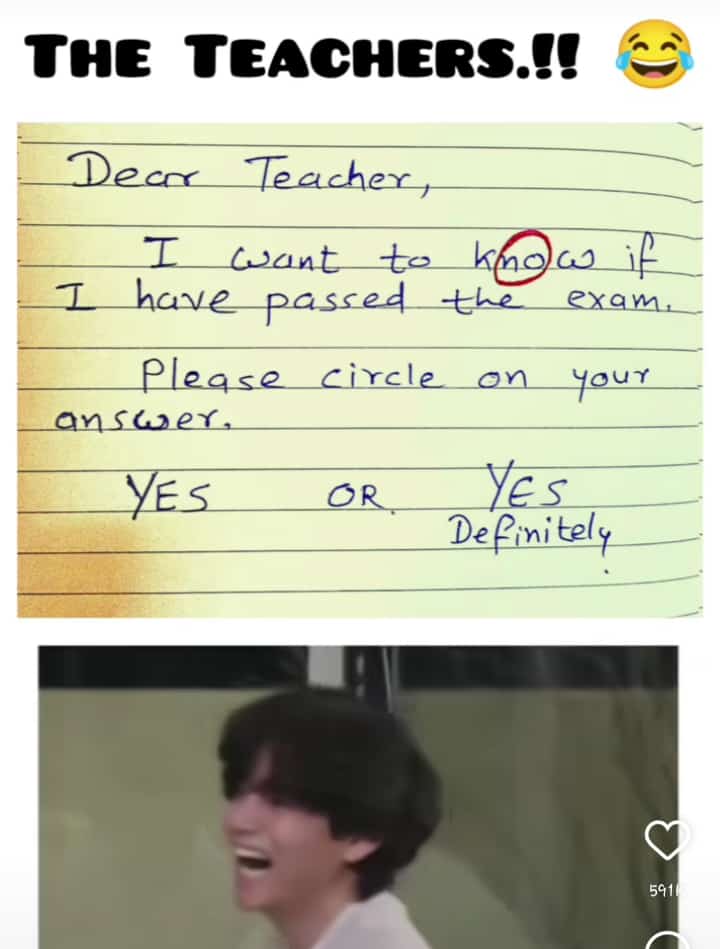 THE TEACHERS.!! 😂
Dear Teacher,
I want to know if
I have passed the exam.
Please circle on your
answer.
YES OR YES
Definitely
591K